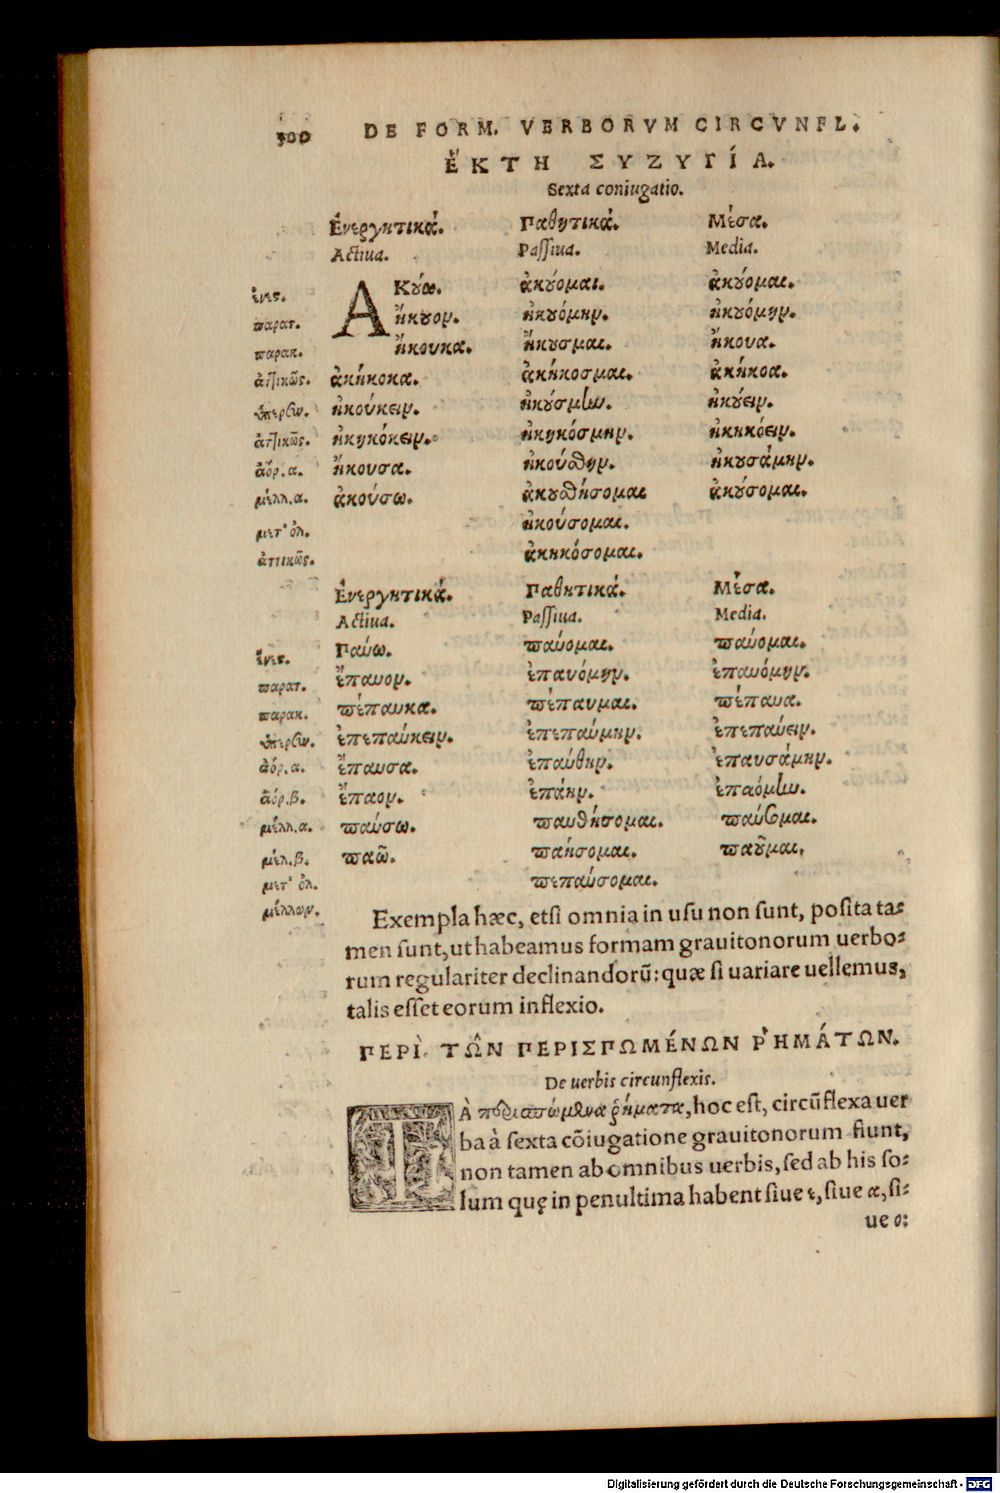 300 DE FORM. VERBORVM CIRCVNFL.
ἝΚΤΗ ΣΥΖΥΓΊΑ.
Sexta coniugatio.
Ἐνεργητικά. Παθητικά. Μέσα.
Actiua. Passiua. Media.
ἐνες. ΑΚούω. ἀκούομαι. ἀκούομαι.
παρατ. ἤκουον. ἠκουόμην. ἠκουόμην.
παρακ. ἤκουκα. ἤκουσμαι. ἤκουα.
ἀττικῶς. ἀκήκοκα. ἀκήκοσμαι. ἀκήκοα.
ὑπερσυν. ἠκούκειν. ἠκούσμην. ἠκούειν.
ἀττικῶς. ἠκηκόκειν. ἠκηκόσμην. ἠκηκόειν.
ἀόρ. α. ἤκουσα. ἠκούσθην. ἠκουσάμην.
μέλλ. α. ἀκούσω. ἀκουσθήσομαι ἀκούσομαι.
μετ' ὀλ. ἠκούσομαι.
ἀττικῶς. ἀκηκόσομαι.
Ἐνεργητικά. Παθητικά. Μέσα.
Actiua. Passiua. Media.
ἐνες. Παύω. παύομαι. παύομαι.
παρατ. ἔπαυον. ἐπαυόμην. ἐπαυόμην.
παρακ. πέπαυκα. πέπαυμαι. πέπαυα.
ὑπερσυν. ἐπεπαύκειν. ἐπεπαύμην. ἐπεπαύειν.
ἀόρ. α. ἔπαυσα. ἐπαύθην. ἐπαυσάμην.
ἀόρ. β. ἔπαον. ἐπάην. ἐπαόμην.
μέλλ. α. παύσω. παυθήσομαι. παύσομαι.
μέλ. β. παῶ. παήσομαι. παοῦμαι.
μετ' ὀλ. πεπαύσομαι.
μέλλων.
Exempla hæc, etsi omnia in usu non sunt, posita ta-
men sunt, ut habeamus formam grauitonorum uerbo-
rum regulariter declinandorũ: quæ si uariare uellemus,
talis esset eorum inflexio.
ΠΕΡῚ ΤΩ͂Ν ΠΕΡΙΣΠΩΜΈΝΩΝ ῬΗΜΆΤΩΝ.
De uerbis circunflexis.
TÀ περισπώμενα ῥήματα, hoc est, circũflexa uer
ba à sexta cõiugatione grauitonorum fiunt,
non tamen ab omnibus uerbis, sed ab his so-
lum quę in penultima habent siue ε, siue α, si-
ue ο:
Digitalisierung gefördert durch die Deutsche Forschungsgemeinschaft - DFG